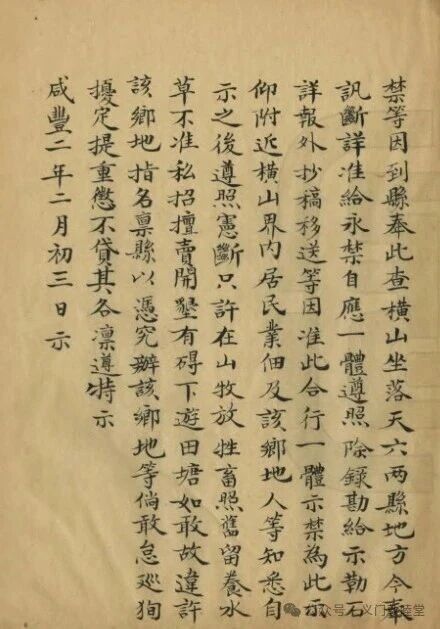 禁等因到縣奉此查橫山坐落天六兩縣地方今奉
訊斷詳准給永禁自應一體遵照除錄勘給示勒石
詳報外抄稿移送等因准此合行一體示禁為此示
仰附近橫山界内居民業佃及該鄉地人等知悉自
示之後遵照憲斷只許在山牧放牲畜照舊留養水
草不准私招擅賣開墾有碍下遊田塘如敢故違許
該鄉地指名禀縣以憑究辦該鄉地等倘敢怠巡狥
擾定提重懲不貸其各凛遵特示
咸豐二年二月初三日示
公众号 义门 陸堂